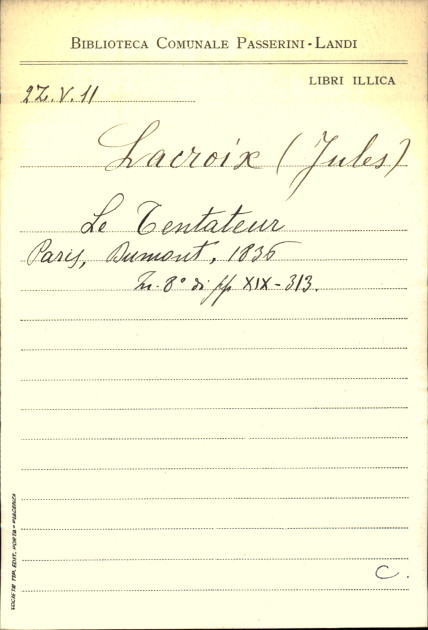 BIBLIOTECA COMUNALE PASSERINI-LANDI
LIBRI ILLICA
2Z.V.11
Lacroix (Jules)
Le Tentateur
Paris, Dumont, 1836
In-8° di pp XIX-313.
C.
SOCIETÀ TIP. EDIT. PORTA - PIACENZA